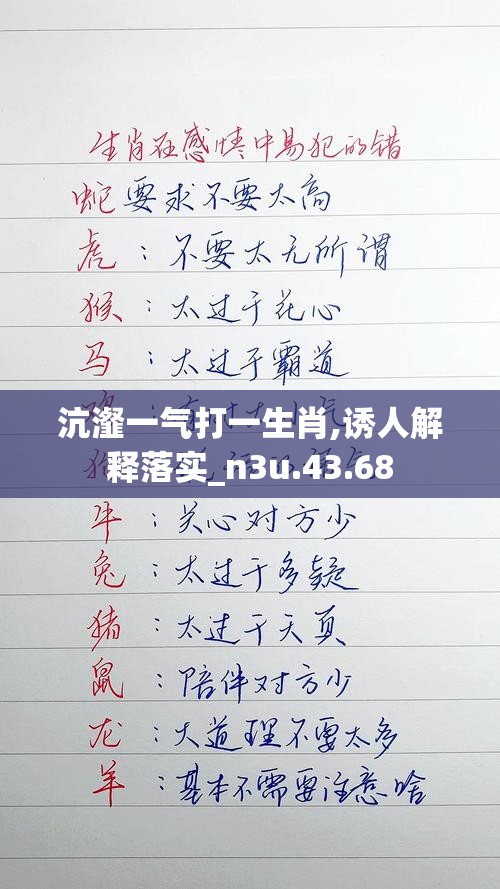 生肖在感情中易犯的错
蛇要求不要太高
虎：不要太无所谓
猴：太过于花心
马：太过于霸道
沆瀣一气打一生肖,诱人解
释落实_n3u.43.68
牛：关心对方少
兔：太过于多疑
猪：太过于天真
鼠：陪伴对方少
龙：大道理不要太多
羊：基本不需要注意啥